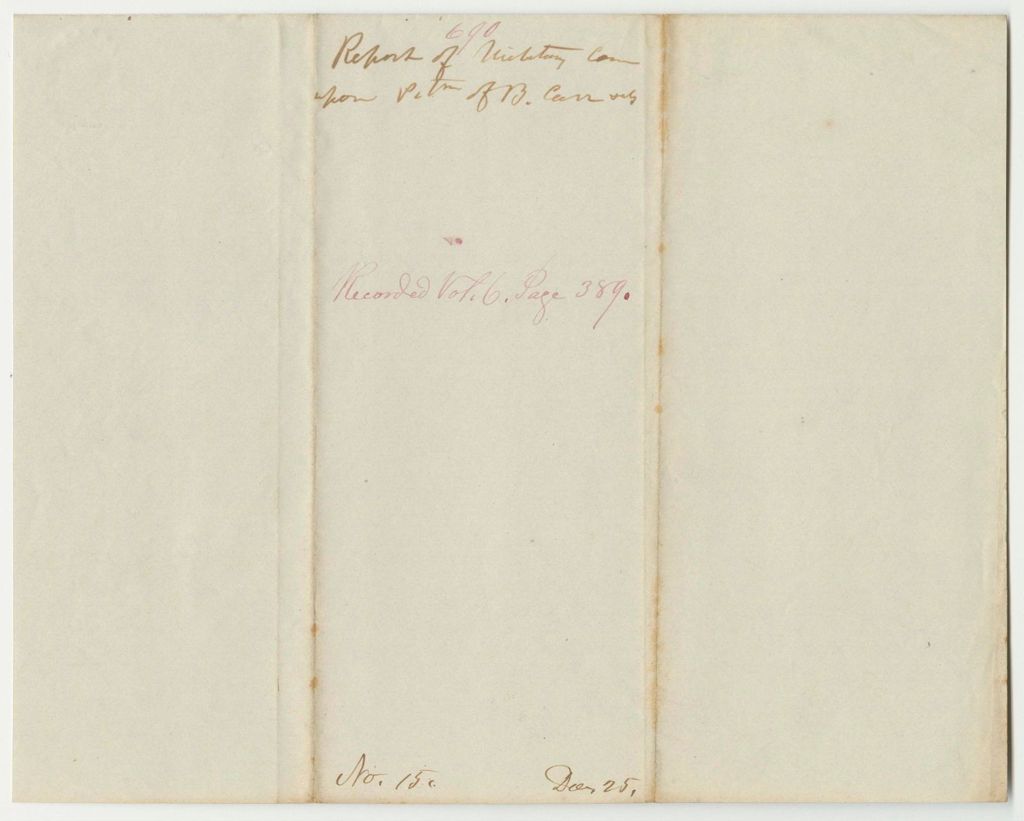 690
Report of Military Com
upon Petn of B. Carr &als
Recorded Vol. 6. Page 389.
No. 15. Doc. 25.